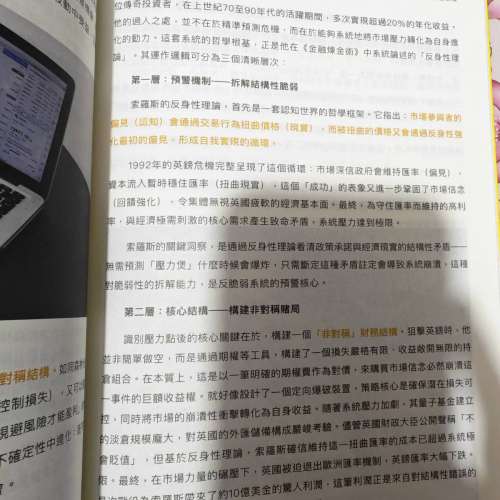 位傳奇投資者，在上世紀70至90年代的活躍期間，多次實現超過20%的年化收益。
他的過人之處，並不在於精準預測危機，而在於能夠系統地將市場壓力轉化為自身進
化的動力。這套系統的哲學根基，正是他在《金融煉金術》中系統論述的「反身性理
論」。其運作邏輯可分為三個清晰層次：
第一層：預警機制——拆解結構性脆弱
索羅斯的反身性理論，首先是一套認知世界的哲學框架。它指出：市場參與者的
偏見（認知）會通過交易行為扭曲價格（現實），而被扭曲的價格又會通過反身性強
化最初的偏見，形成自我實現的循環。
1992年的英鎊危機完整呈現了這個循環：市場深信政府會維持匯率（偏見），
資本流入暫時穩住匯率（扭曲現實），這個「成功」的表象又進一步鞏固了市場信念
（回饋強化），令集體無視英國疲軟的經濟基本面。最終，為守住匯率而維持的高利
率，與經濟極需刺激的核心需求產生致命矛盾，系統壓力達到極限。
索羅斯的關鍵洞察，是通過反身性理論看清政策承諾與經濟現實的結構性矛盾——
無需預測「壓力煲」什麼時候會爆炸，只需斷定這種矛盾註定會導致系統崩潰。這種
對脆弱性的拆解能力，是反脆弱系統的預警核心。
第二層：核心結構——構建非對稱賭局
識別壓力點後的核心關鍵在於，構建一個「非對稱」財務結構。狙擊英鎊時，他
並非簡單做空，而是通過期權等工具，構建了一個損失嚴格有限、收益敞開無限的持
倉組合。在本質上，這是以一筆明確的期權費作為對價，來購買市場信念必然崩潰這
一事件的巨額收益權。就好像設計了一個定向爆破裝置，策略核心是確保潛在損失可
控，同時將市場的崩潰性衝擊轉化為自身收益。隨著系統壓力加劇，其量子基金建立
的淡倉規模龐大，對英國的外匯儲備構成嚴峻考驗。儘管英國財政大臣公開聲稱「不
會貶值」，但基於反身性理論，索羅斯確信維持這一扭曲匯率的成本已超過系統極
限。最終，在市場力量的碾壓下，英國被迫退出歐洲匯率機制，英鎊匯率大幅下跌。
為索羅斯帶來了約10億美金的驚人利潤，這筆利潤正是來自對結構性錯誤的
對稱結構。如同森林
控制損失），又可以
視避風險才能盈利，
不確定性中進化：